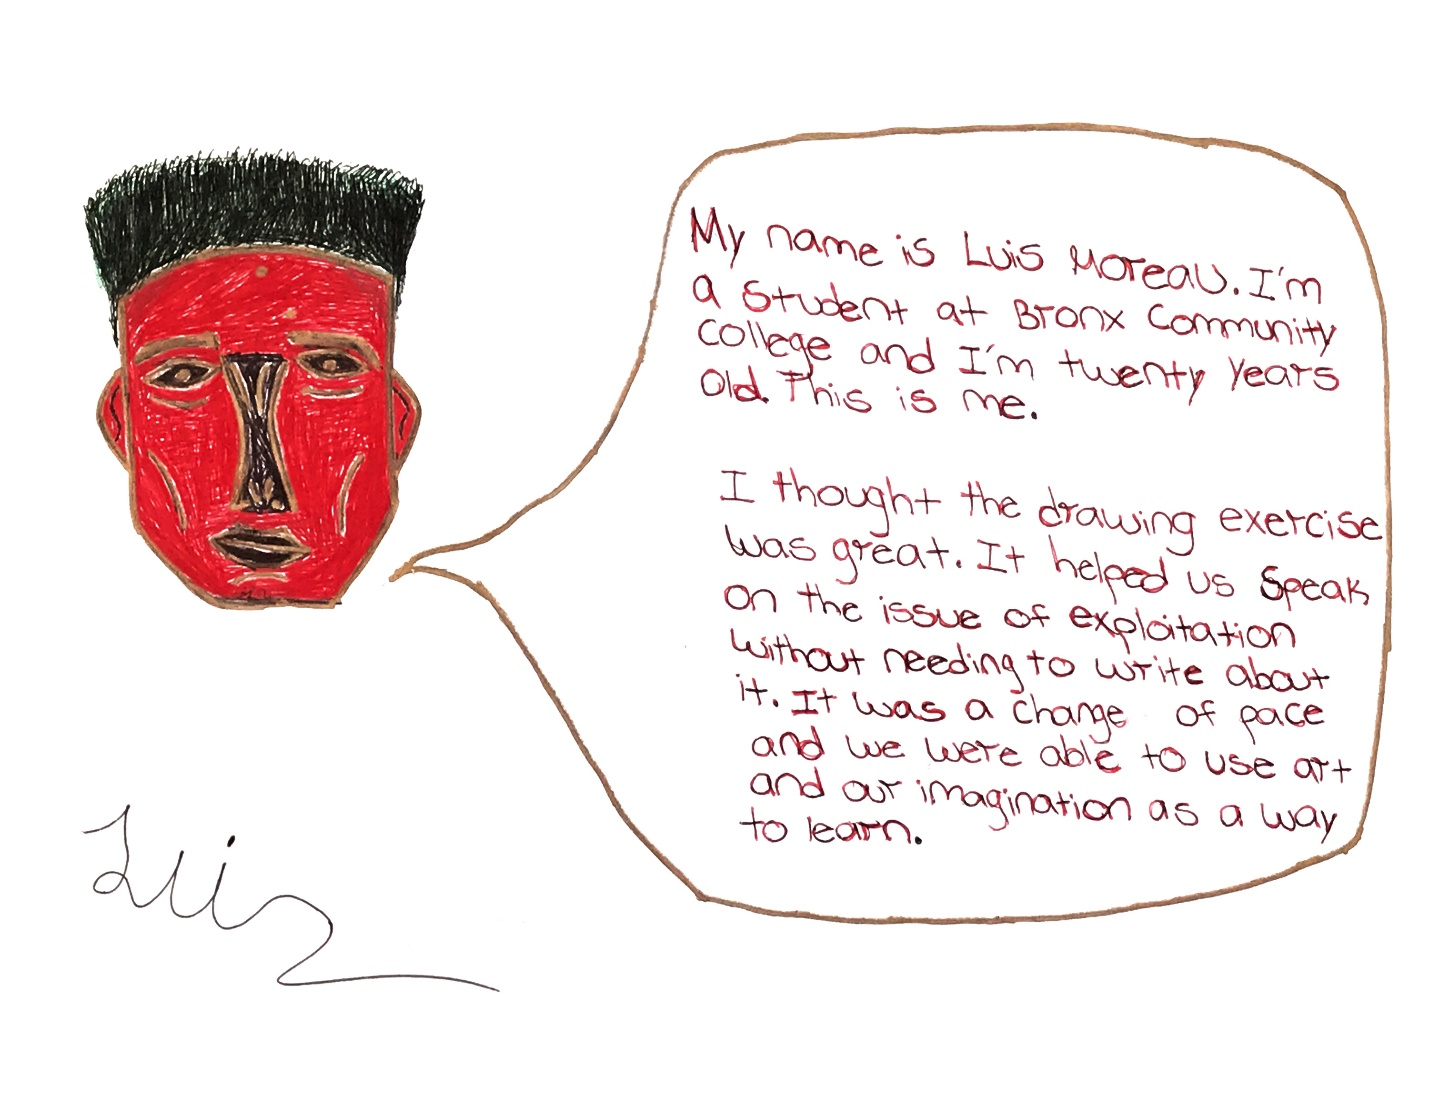 My name is Luis Moreau. I'm
a student at Bronx Community
College and I'm twenty years
old. This is me.
I thought the drawing exercise
was great. It helped us speak
on the issue of exploitation
without needing to write about
it. It was a change of pace
and we were able to use art
and our imagination as a way
to learn.
Luis